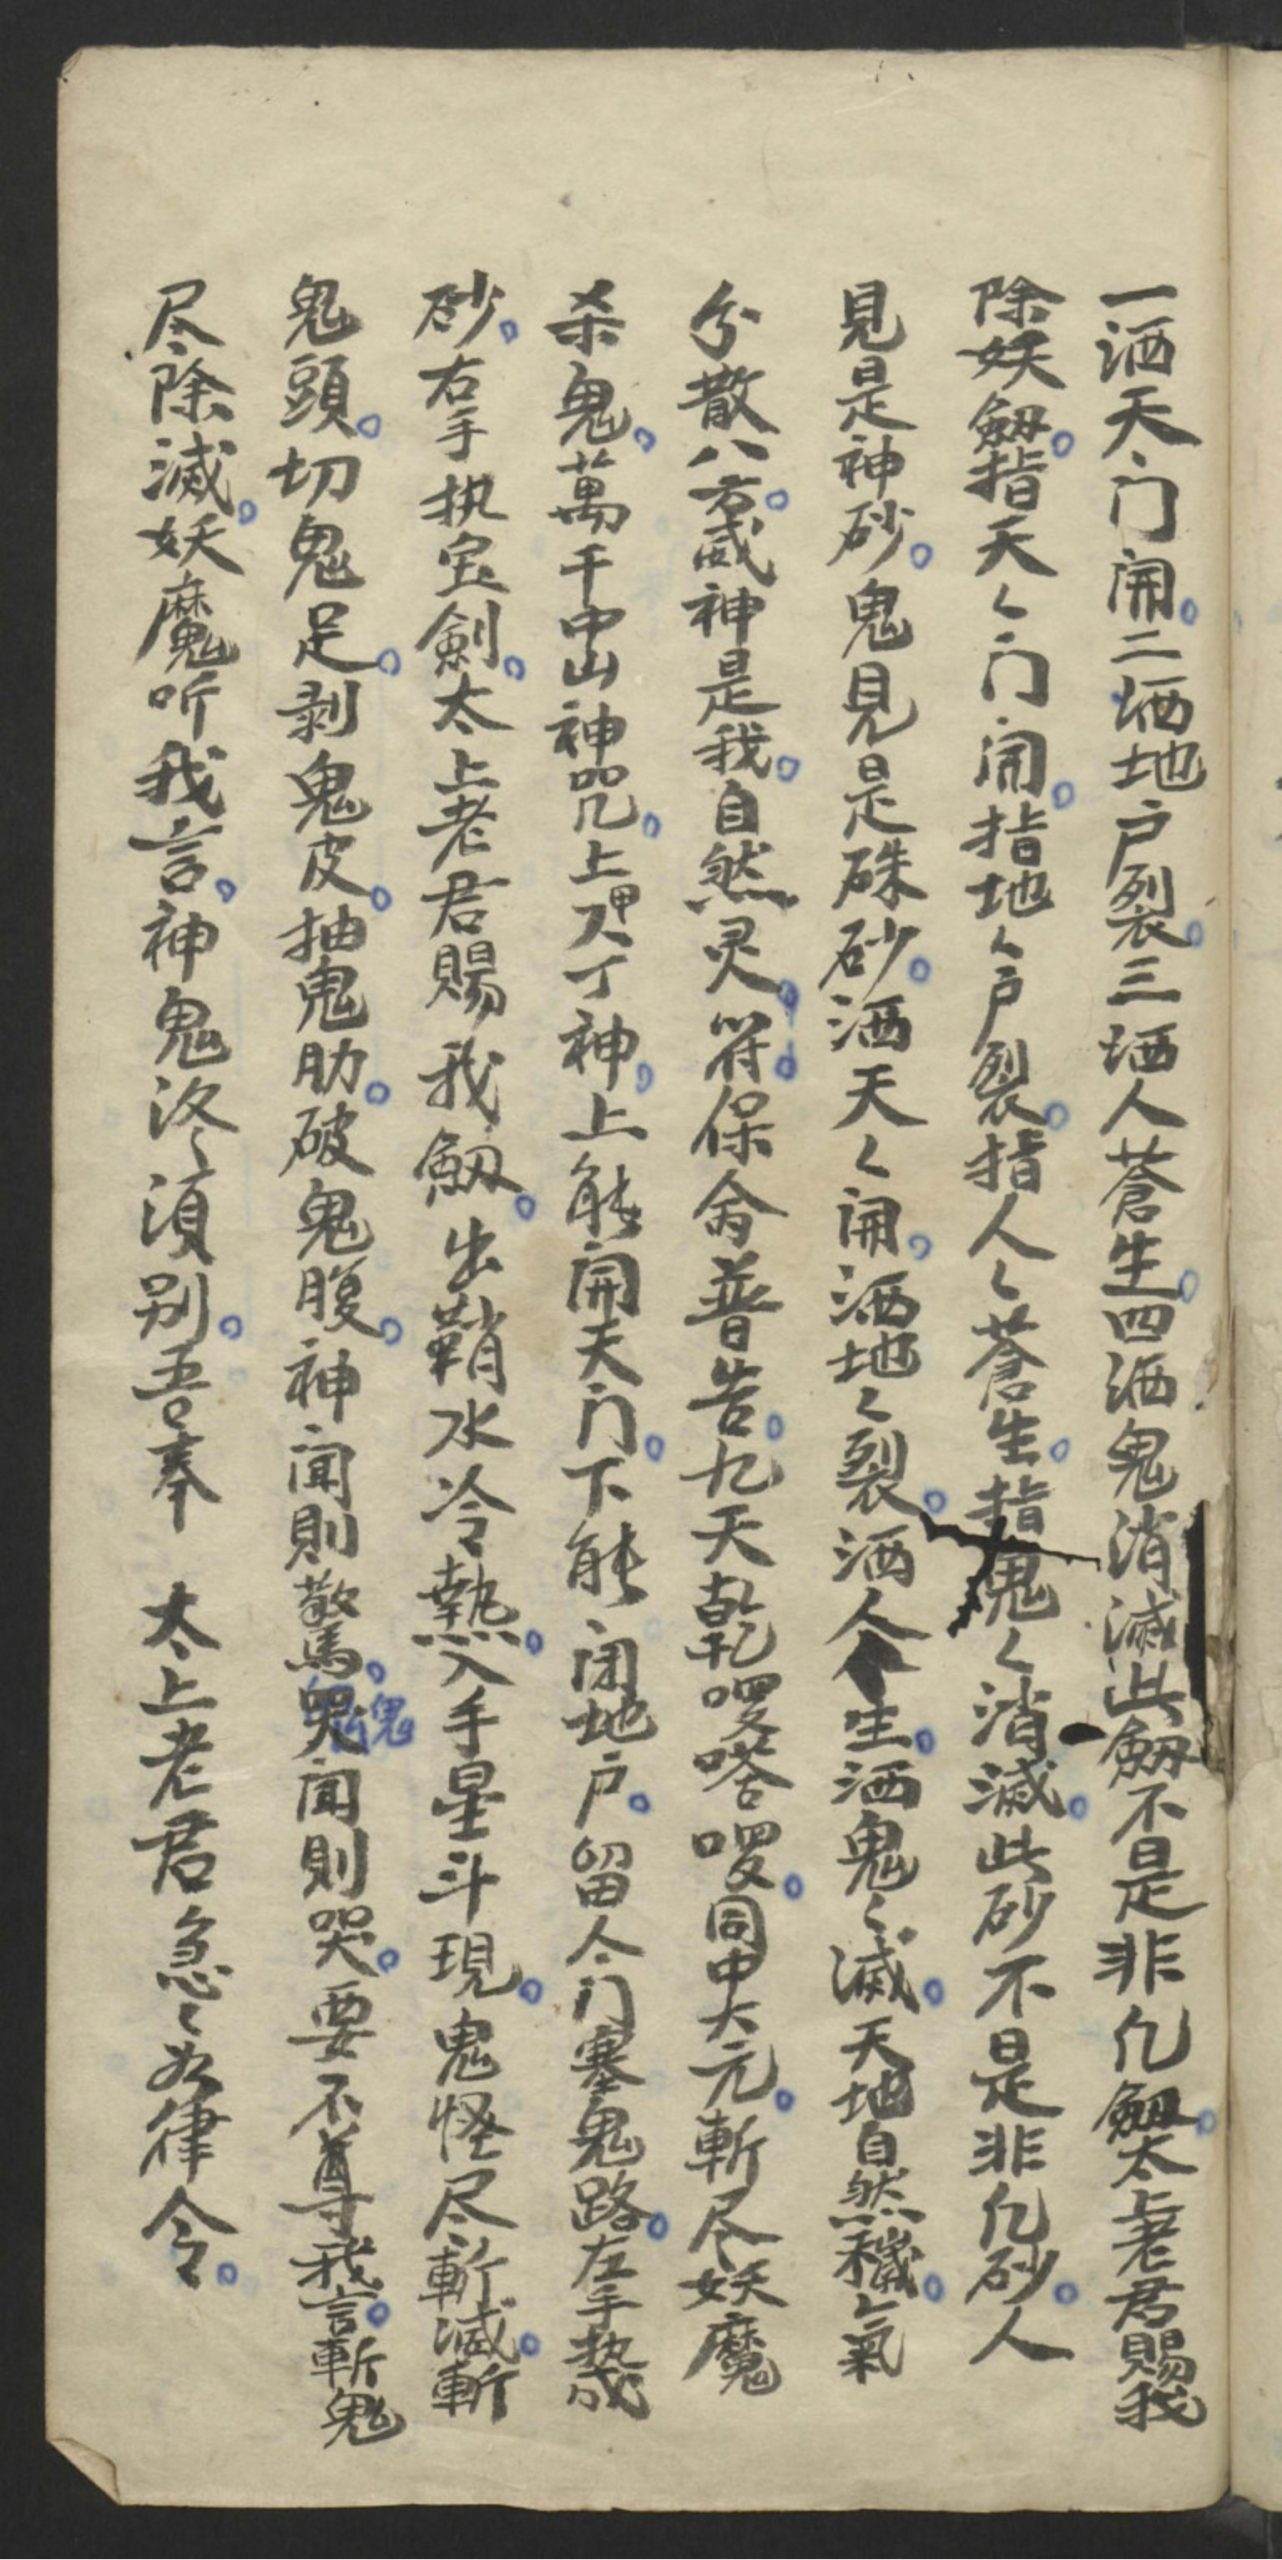 一洒天门開。二洒地户裂。三洒人蒼生。四洒鬼消滅此劔不是非凢劔。太上老君賜我
除妖劔。指天〻门開。指地〻户裂。指人〻蒼生。指鬼〻消滅。此砂不是非凢砂。人
見是神砂。鬼見是硃砂。洒天〻開。洒地〻裂。洒人〻生。洒鬼〻滅。天地自然穢。氣
分散八方。威神是我。自然灵。符。保命普告。九天乾啰嗒啰。同中大元。斬尽妖魔
杀鬼。萬千中山神咒。上甲下丁神。上能開天门。下能闭地户。留人门塞鬼路。左手执
砂。右手执宝劍。太上老君賜我劔。出鞘水冷熱。入手星斗現。鬼怪尽斬滅。斬
鬼頭。切鬼足。剥鬼皮。抽鬼肋。破鬼腹。神聞則驚。鬼聞則哭。要不尊我言。斬鬼
尽除滅。妖魔听我言。神鬼 須别。吾奉 太上老君急〻如律令。